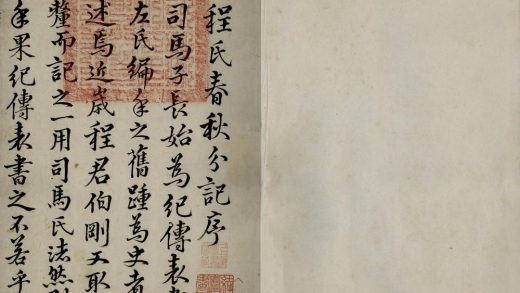 程氏春秋分記序
司馬子長始為紀傳表
左氏編年之舊踵為史者
述焉近歲程君伯剛又取
釐而記之一用司馬氏法然
年果紀傳表書之不若乎